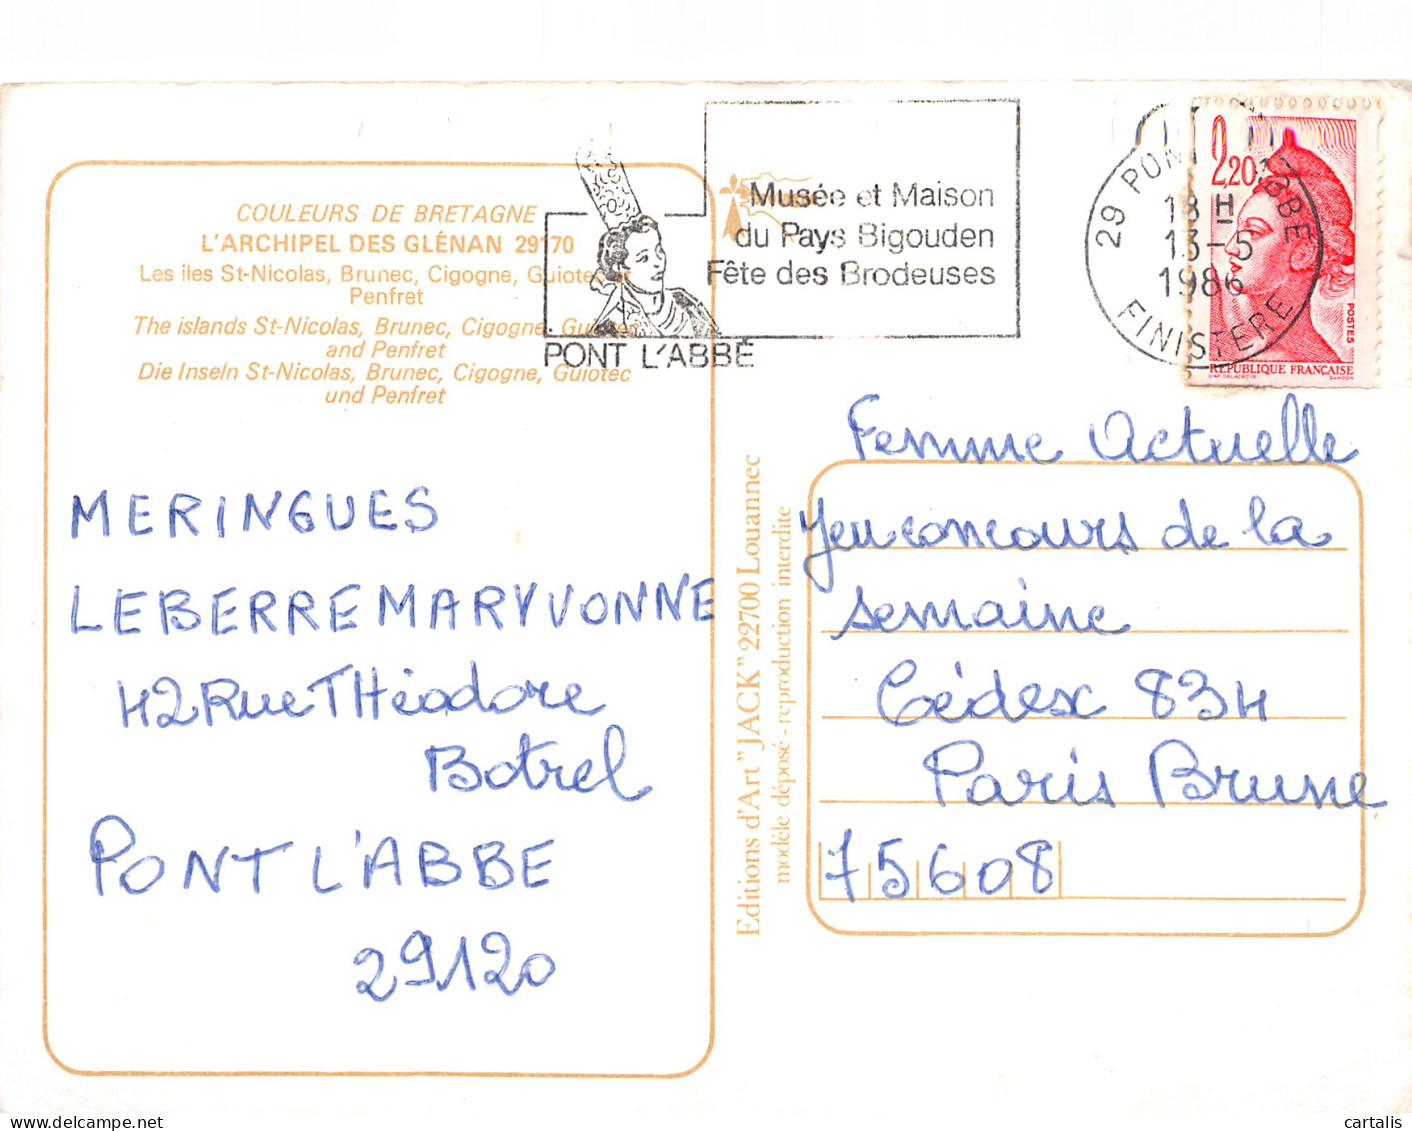 COULEURS DE BRETAGNE
L'ARCHIPEL DES GLÉNAN 29170
Les îles St-Nicolas, Brunec, Cigogne, Guiotec et
Penfret
The islands St-Nicolas, Brunec, Cigogne, Guiotec
and Penfret
Die Inseln St-Nicolas, Brunec, Cigogne, Guiotec
und Penfret
PONT L'ABBÉ
Musée et Maison
du Pays Bigouden
Fête des Brodeuses
29 PONT L'ABBE
18 H
13-5
1986
FINISTERE
2,20
POSTES
REPUBLIQUE FRANÇAISE
D'AP. DELACROIX GANDON
MERINGUES
LEBERRE MARYVONNE
42 Rue THéodore
Botrel
PONT L'ABBE
29120
Editions d'Art "JACK" 22700 Louannec
modèle déposé - reproduction interdite
Femme Actuelle
Jeu concours de la
semaine
Cédex 834
Paris Brune
75608
cartalis